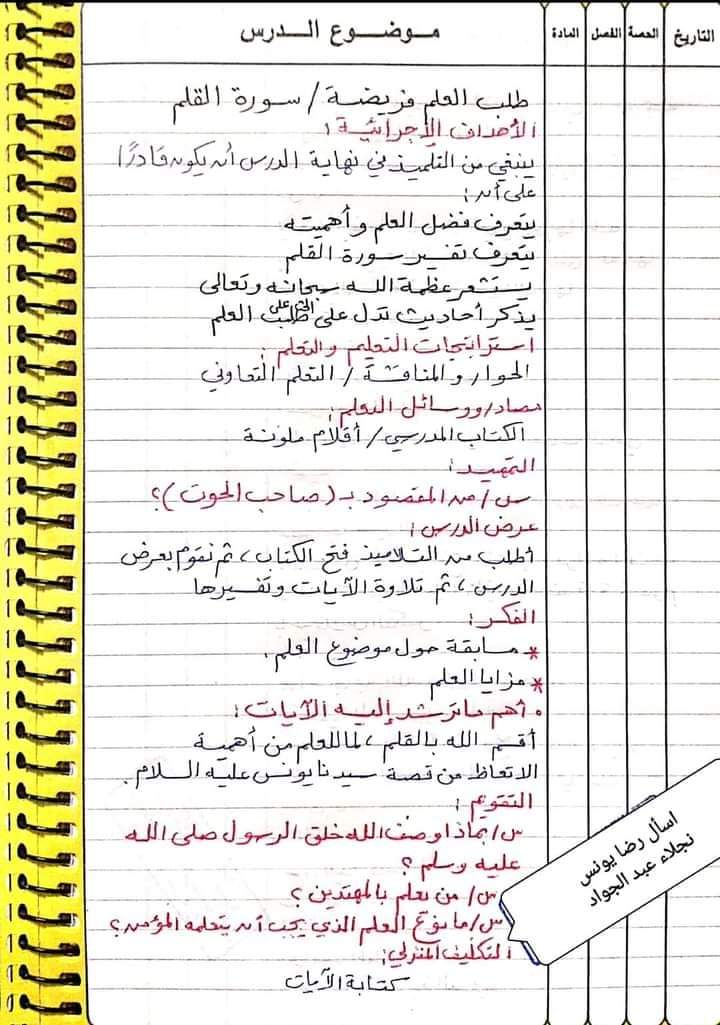 التاريخ الحصة الفصل المادة موضوع الدرس
طلب العلم فريضة / سورة القلم
الأهداف الإجرائية :
ينبغي من التلميذ في نهاية الدرس أن يكون قادرًا
على أن :
يتعرف فضل العلم وأهميته
يتعرف تفسير سورة القلم
يستشعر عظمة الله سبحانه وتعالى
يذكر أحاديث تدل على الحث على طلب العلم
استراتيجات التعليم والتعلم :
الحوار والمناقشة / التعلم التعاوني
مصادر ووسائل التعلم :
الكتاب المدرسي / أقلام ملونة
التمهيد :
س / من المقصود بـ (صاحب الحوت) ؟
عرض الدرس :
أطلب من التلاميذ فتح الكتاب ، ثم نقوم بعرض
الدرس ، ثم تلاوة الآيات وتفسيرها
الفكر :
* مسابقة حول موضوع العلم .
* مزايا العلم
• أهم ما ترشد إليه الآيات :
أقسم الله بالقلم ، لما للعلم من أهمية
الاتعاظ من قصة سيدنا يونس عليه السلام .
التقويم :
س / بماذا وصف الله خلق الرسول صلى الله
عليه وسلم ؟
س / من يعلم بالمهتدين ؟
س / ما نوع العلم الذي يجب أن يتعلمه المؤمن ؟
التكليف المنزلي :
كتابة الآيات
اسأل رضا يونس
نجلاء عبد الجواد